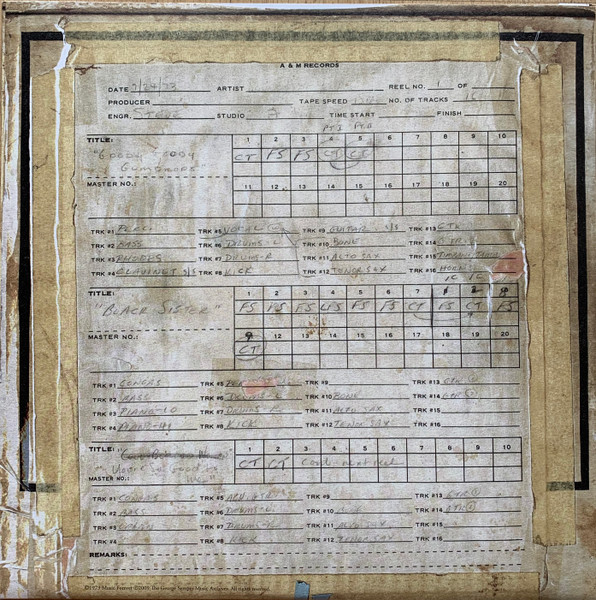 A & M RECORDS
DATE 7/24/73 ARTIST REEL NO. 1 OF
PRODUCER TAPE SPEED NO. OF TRACKS 16
ENGR. STUDIO TIME START FINISH
PT I PT II
TITLE: 1 2 3 4 5 6 7 8 9 10
"GOODY GOODY GUMDROPS" CT FS FS CT CT
MASTER NO.: 11 12 13 14 15 16 17 18 19 20
TRK #1 PERC. TRK #5 VOCAL TRK #9 GUITAR TRK #13 GTR
TRK #2 BASS TRK #6 DRUMS-L TRK #10 BONE TRK #14
TRK #3 RHODES TRK #7 DRUMS-R TRK #11 ALTO SAX TRK #15
TRK #4 CLAVINET TRK #8 KICK TRK #12 TENOR SAX TRK #16 HORNS
TITLE: 1 2 3 4 5 6 7
"BLACK SISTER" FS FS FS LFS FS FS CT FS CT FS
MASTER NO.: 9 12 13 14 15 16 17 18 19 20
CT
TRK #1 CONGAS TRK #5 TRK #9 TRK #13 GTR
TRK #2 BASS TRK #6 DRUMS-L TRK #10 BONE TRK #14 GTR
TRK #3 PIANO-LO TRK #7 DRUMS-R TRK #11 ALTO SAX TRK #15
TRK #4 PIANO-HI TRK #8 KICK TRK #12 TENOR SAX TRK #16
TITLE: 1 2 3 4 5 6 7 8 9 10
CT CT Cont. next reel
MASTER NO.:
TRK #1 CONGAS TRK #5 TRK #9 TRK #13 GTR
TRK #2 BASS TRK #6 DRUMS-L TRK #10 TRK #14 GTR
TRK #3 TRK #7 DRUMS-R TRK #11 ALTO SAX TRK #15
TRK #4 TRK #8 KICK TRK #12 TENOR SAX TRK #16
REMARKS: